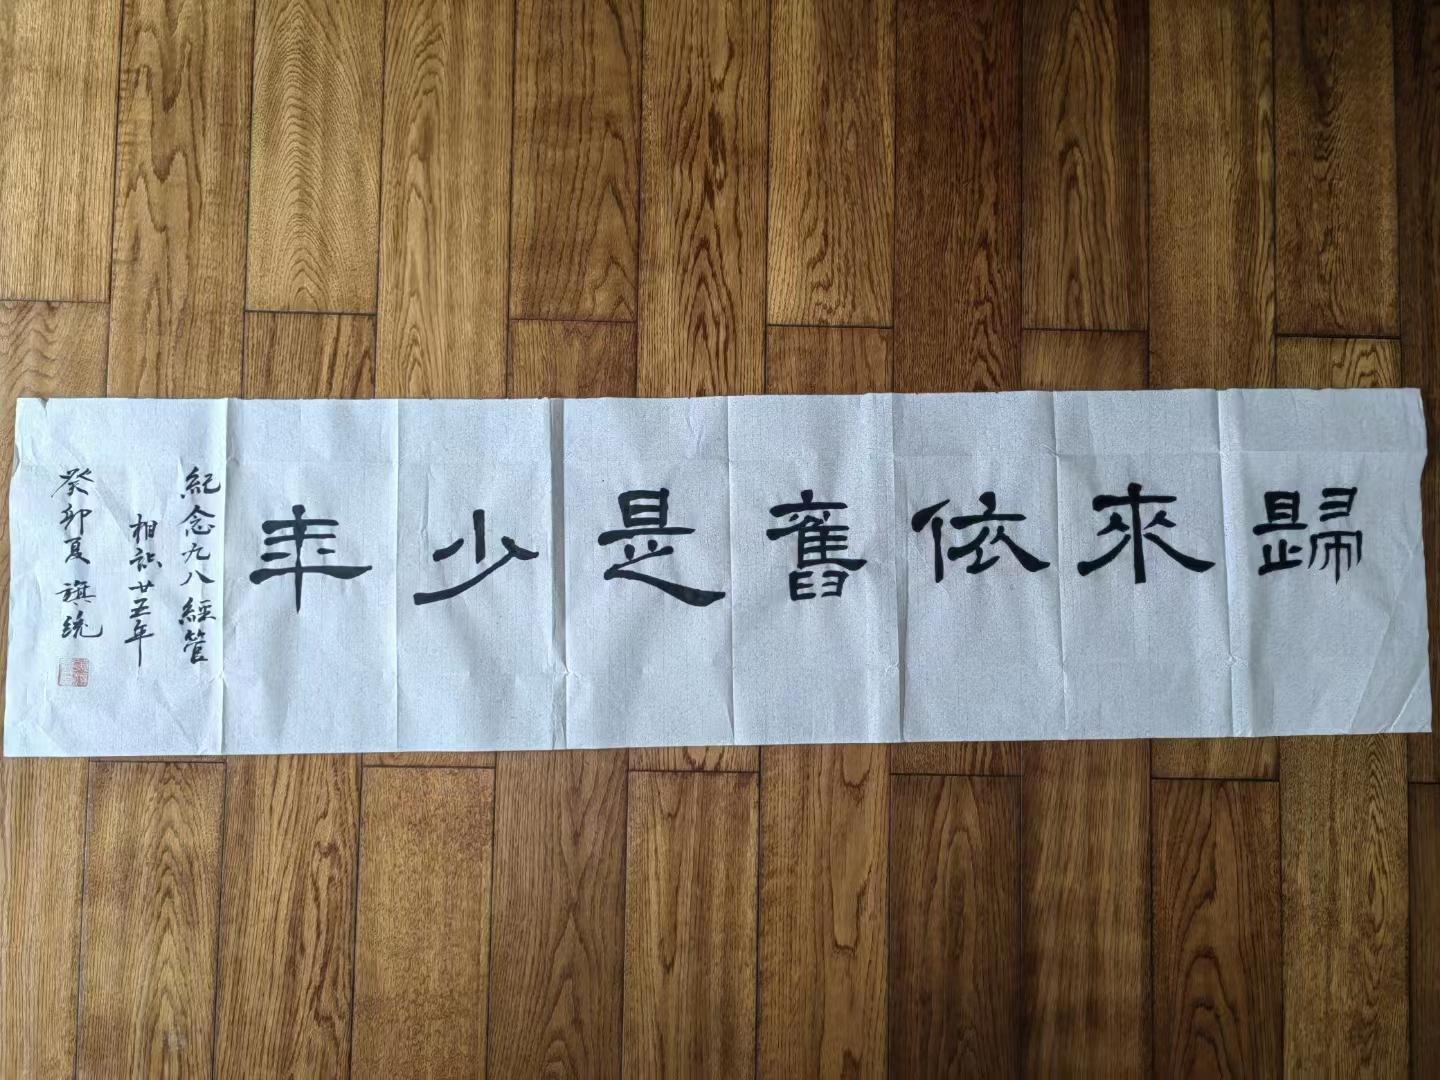 歸來依舊是少年
紀念九八經管
相識廿五年
癸卯夏 旗統